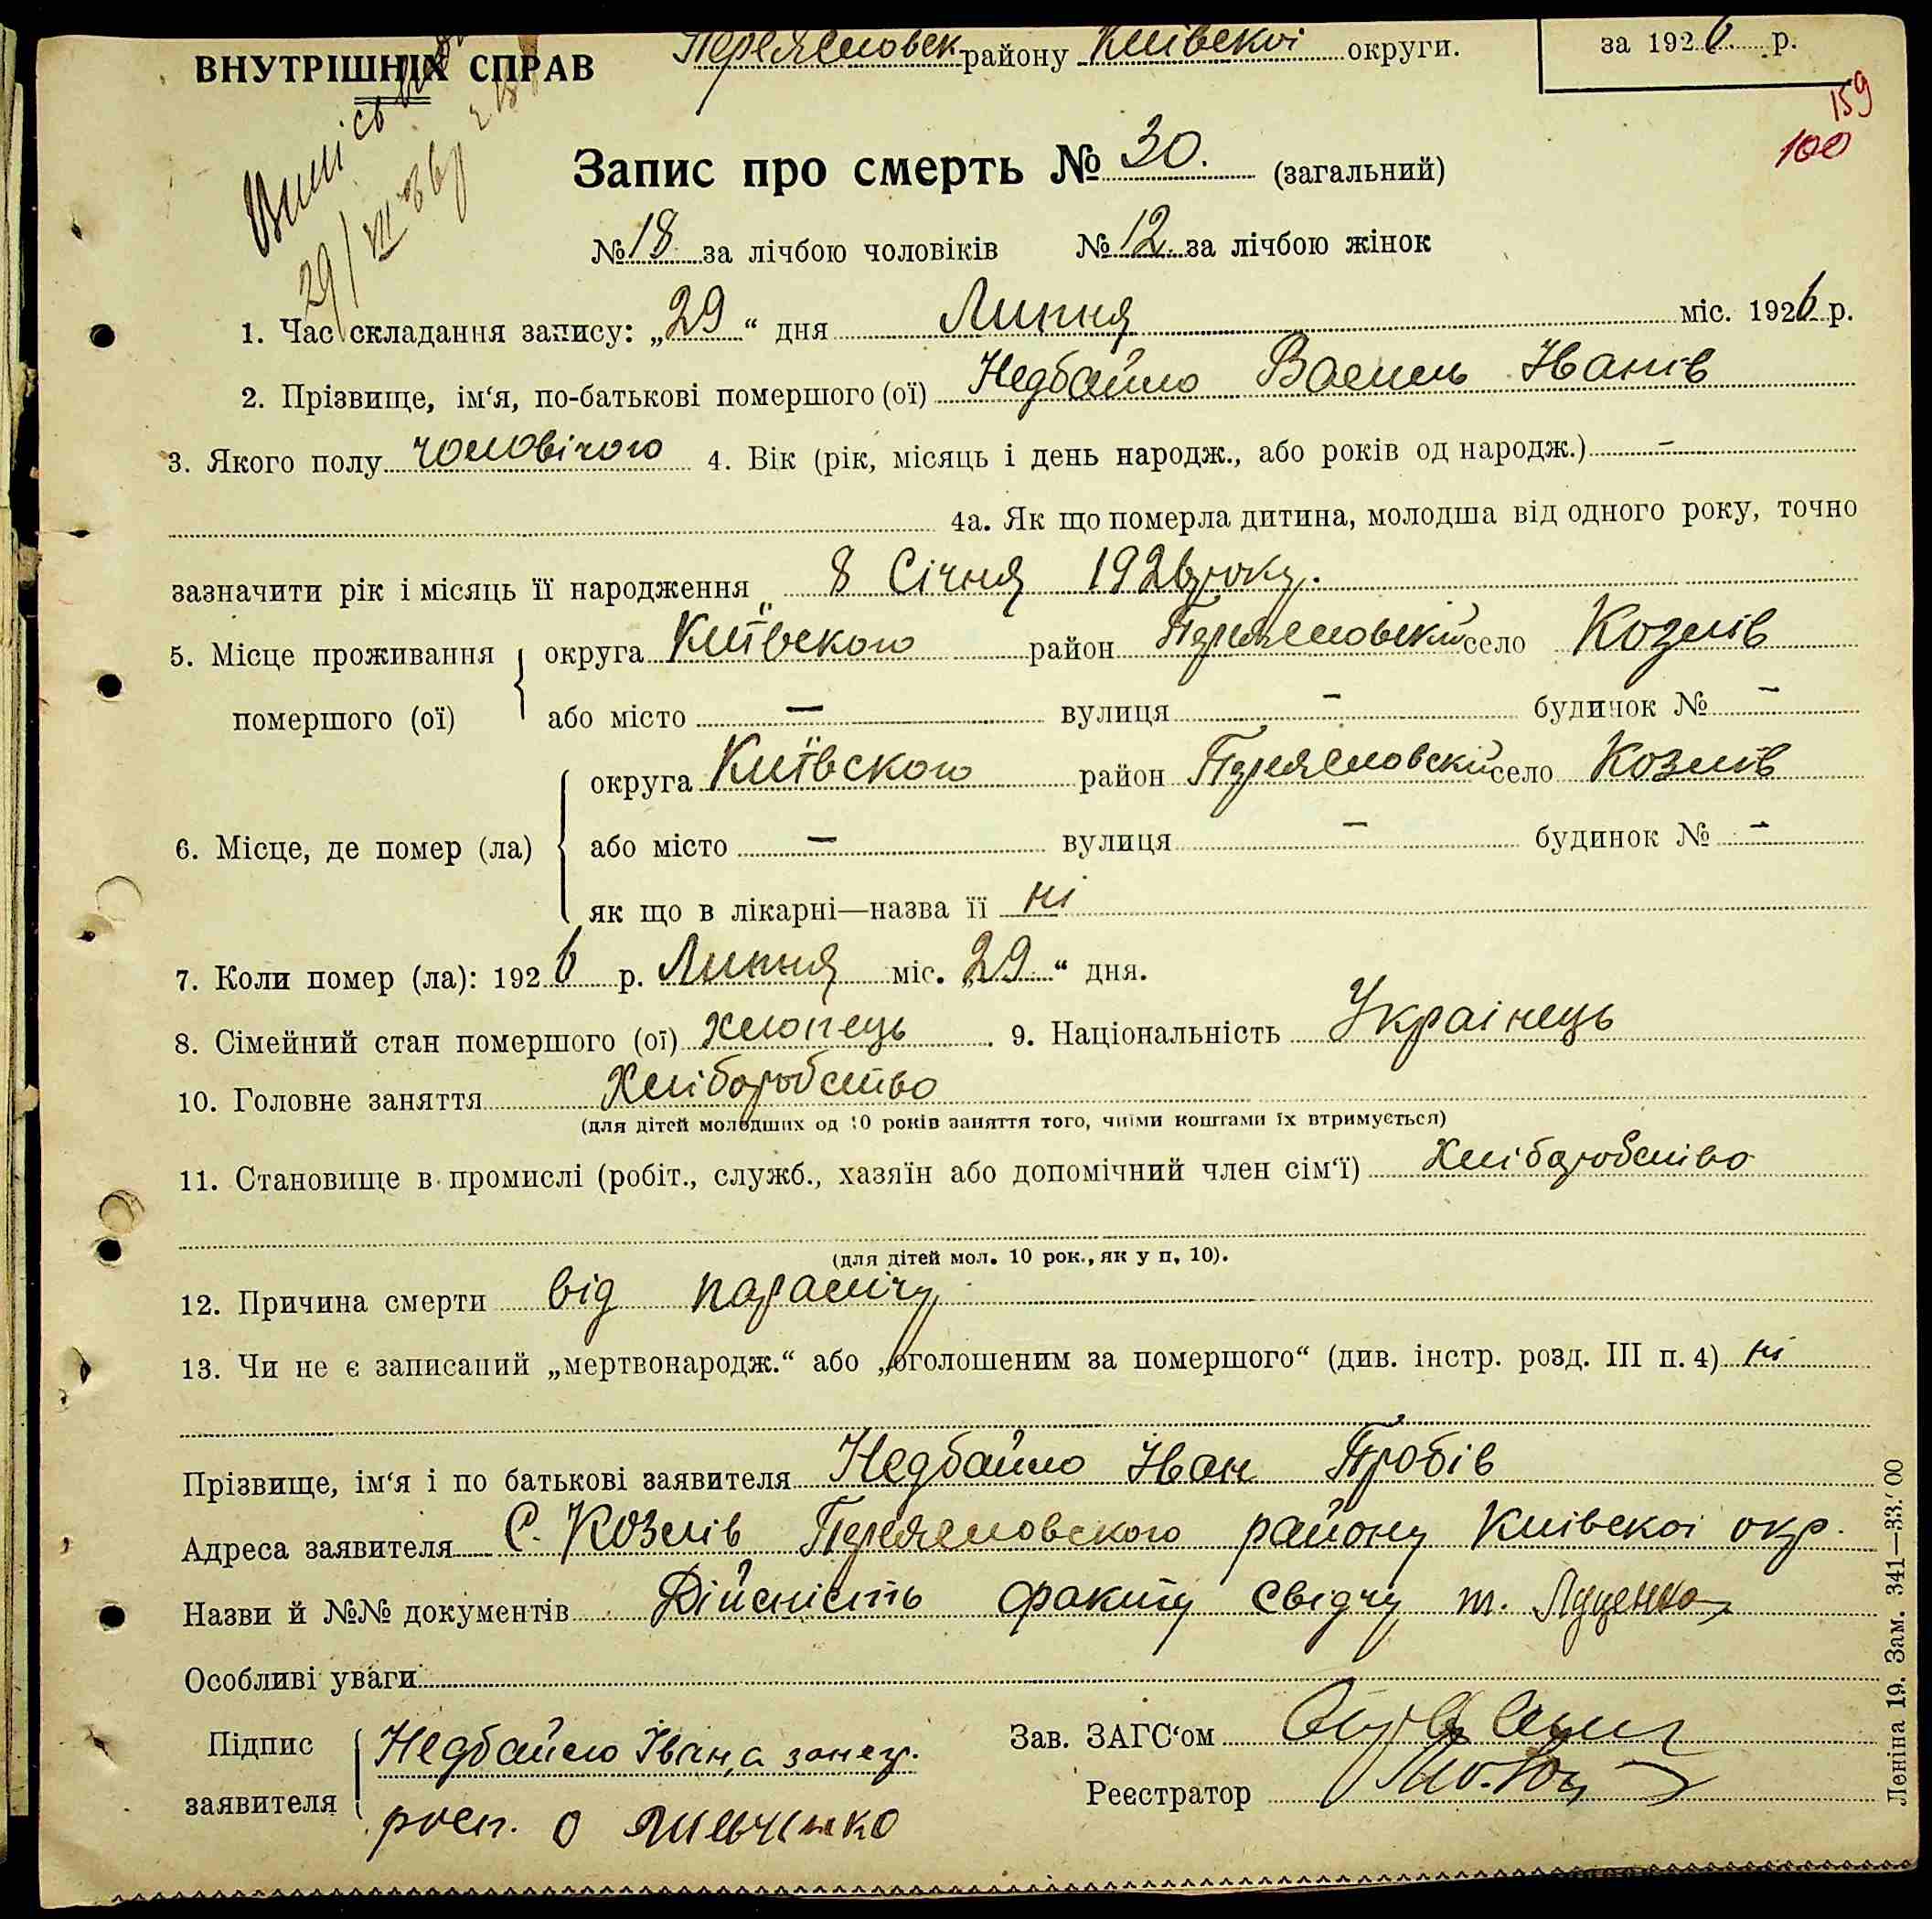 ВНУТРІШНІХ СПРАВ Переяславск району Київскої округи. за 1926 р.
159
100
29/VII
Запис про смерть № 30. (загальний)
№ 18 за лічбою чоловіків № 12. за лічбою жінок
1. Час складання запису: „29“ дня Липня міс. 1926 р.
2. Прізвище, ім‘я, по-батькові помершого (ої) Недбайло Василь Іванів
3. Якого полу чоловічого 4. Вік (рік, місяць і день народж., або років од народж.) –
4а. Як що померла дитина, молодша від одного року, точно
зазначити рік і місяць її народження 8 Січня 1926 року.
5. Місце проживання округа Київского район Переяславский село Козлів
помершого (ої) або місто – вулиця – будинок № –
округа Київского район Переяславский село Козлів
6. Місце, де помер (ла) або місто – вулиця – будинок № –
як що в лікарні—назва її ні
7. Коли помер (ла): 1926 р. Липня міс. „29“ дня.
8. Сімейний стан помершого (ої) хлопець. 9. Національність Українець
10. Головне заняття Хліборобство
(для дітей молодших од 10 років заняття того, чиїми коштами їх втримується)
11. Становище в промислі (робіт., служб., хазяїн або допомічний член сім‘ї) Хліборобство
(для дітей мол. 10 рок., як у п, 10).
12. Причина смерти від паралічу
13. Чи не є записаний „мертвонародж.“ або „оголошеним за помершого“ (див. інстр. розд. III п. 4) ні
Прізвище, ім‘я і по батькові заявителя Недбайло Іван
Адреса заявителя С. Козлів Переяславского району Київскої окр.
Назви й №№ документів Дійсність факту свідчу т. Луценко
Особливі уваги
Підпис Недбайло Івана Зав. ЗАГС‘ом
заявителя росп. Реєстратор
Леніна 19. Зам. 341—33.‘00